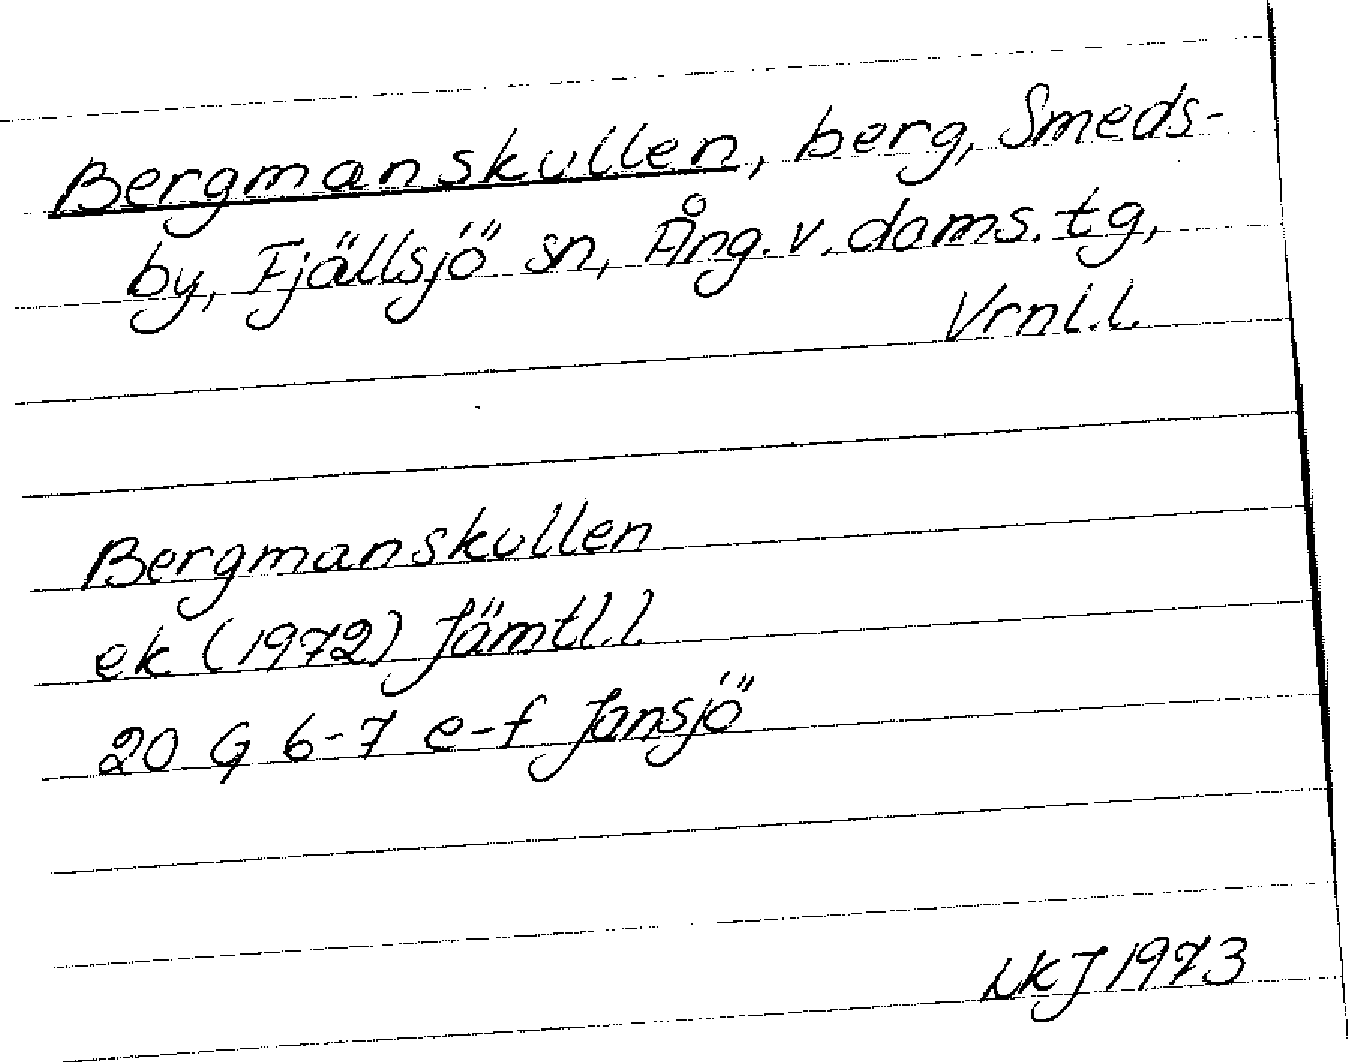 Bergmanskullen, berg, Smeds-
by, Fjällsjö sn, Ång. v. doms. tg,
Vrnl.l.
Bergmanskullen
ek (1972) Jämtl.l.
20 G 6-7 e-f Jansjö
LKJ 1973